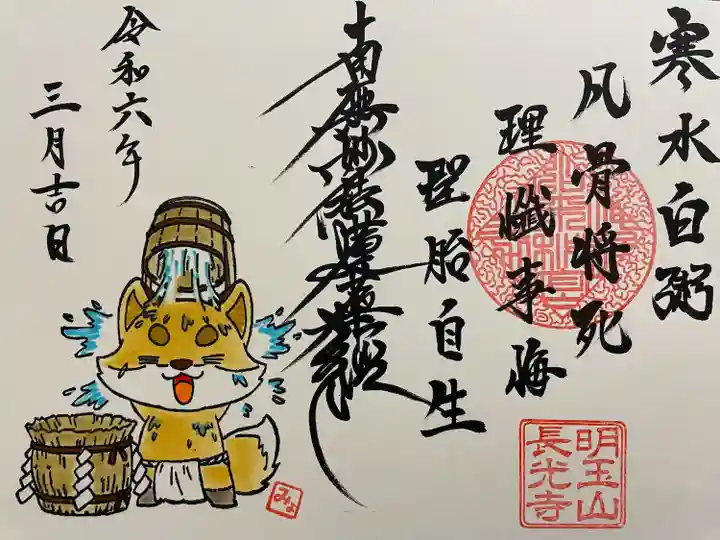 寒水白粥
凡骨将死
理懺事悔
聖胎自生
南無妙法蓮華経
令和六年
三月吉日
明玉山
長光寺
みよ